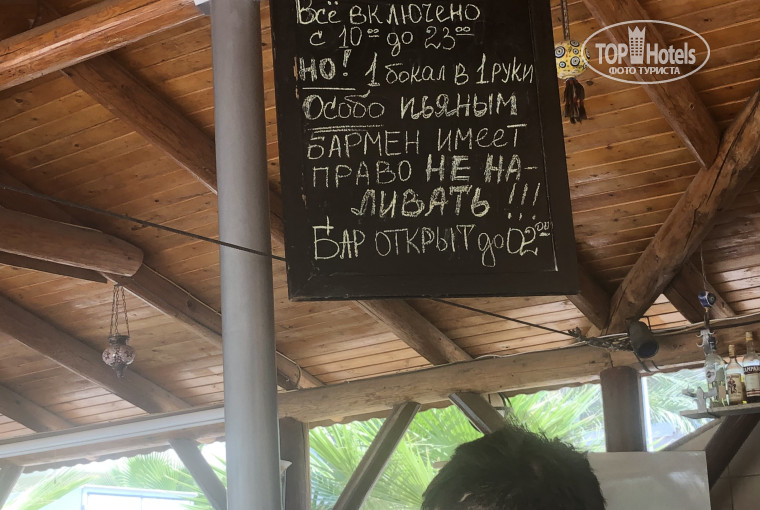 Всё включено
с 10⁰⁰ до 23⁰⁰
НО! 1 бокал в 1 руки
Особо пьяным
бармен имеет
право НЕ НА-
ЛИВАТЬ!!!
Бар открыт до 02⁰⁰
TOP Hotels
ФОТО ТУРИСТА